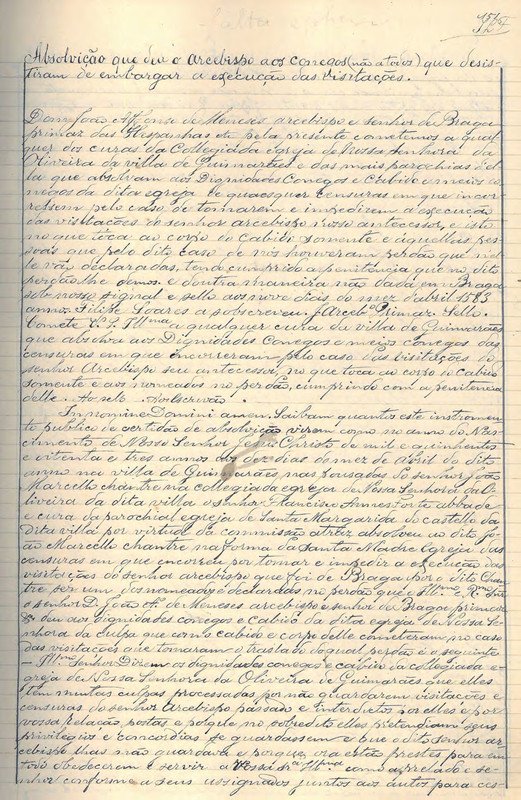 Absolvição que deu o arcebispo aos conegos (não a todos) que desis-
tiram de embargar a execução das visitações.
Dom João Affonso de Meneses arcebispo e senhor de Braga
primaz das Hespanhas etc pela presente cometemos a qual
quer dos curas da Collegiada egreja de Nossa Senhora da
Oliveira da villa de Guimarães e das mais parochias d'el
la que absolvam aos Dignidades Conegos e Cabido e meios co-
negos da dita egreja de quaesquer censuras em que incor
ressem pelo caso de tomarem e impedirem a execução
das visitações do senhor arcebispo nosso antecessor, e isto
no que toca ao corpo do Cabido somente e aquellas pes
soas que pelo dito caso de nós houveram perdão que nel
le vão declaradas, tendo cumprido a penitencia que no dito
perdão lhe demos. e doutra maneira não dada em Braga
sob nosso signal e sello aos nove dias do mez d'abril 1583
annos Filipe Soares a sobscreveu. J. Arcebº Primaz. Sello.
Comete V. S. Illma a qualquer cura da villa de Guimarães
que absolva aos Dignidades Conegos e meios conegos das
censuras em que incorreram pelo caso das visitações do
senhor Arcebispo seu antecessor, no que toca ao corpo do cabido
somente e aos nomeados no perdão, cumprindo com a penitencia
delle. Ao sello. Ao Escrivão.
In nomine Domini amen. Saibam quantos este instromen
to publico de certidão de absolvição virem como no anno do Nas-
cimento de Nosso Senhor Jesu Christo de mil e quinhentos
e oitenta e tres annos aos dez dias do mez de abril do dito
anno na villa de Guimarães, nas pousadas do senhor João
Marcello chantre na collegiada egreja de Nossa Senhora da O-
liveira da dita villa o senhor Francisco abbade
e cura da parochial egreja de Santa Margarida do castello da
dita villa por virtude da commissão atraz absolveu ao dito jo-
ão Marcello chantre na forma da Santa Madre Egreja das
censuras em que encorreu por tomar e impedir a execução das
visitações do senhor arcebispo que foi de Braga por o dito Chan
tre ser um dos nomeados e declarados no perdão que o Illmo e Rmo Snr
o senhor D. João Aº de Meneses arcebispo e senhor de Braga primaz
& deu aos dignidades conegos e Cabido da dita egreja de Nossa Se-
nhora da Culpa que como cabido e corpo delle cometeram no caso
das visitações que tomaram o traslado do qual perdão é o seguinte
— Illmo Senhor Dizem os dignidades conegos e cabido da collegiada e-
greja de Nossa Senhora da Oliveira de Guimarães que elles
tem muitas culpas processadas por não guardarem visitações e
censuras do senhor arcebispo passado e interdictos por elles e por
vossa relação, postos, e porque no sobredito elles pretendiam seus
privilegios e concordias se guardassem e que o dito senhor ar
cebispo lhas não guardava e porque ora estão prestes para em
todo obedecerem e servir a Vossa Sra Illma como a prelado e se-
nhor conforme a seus assignados juntos aos autos para os